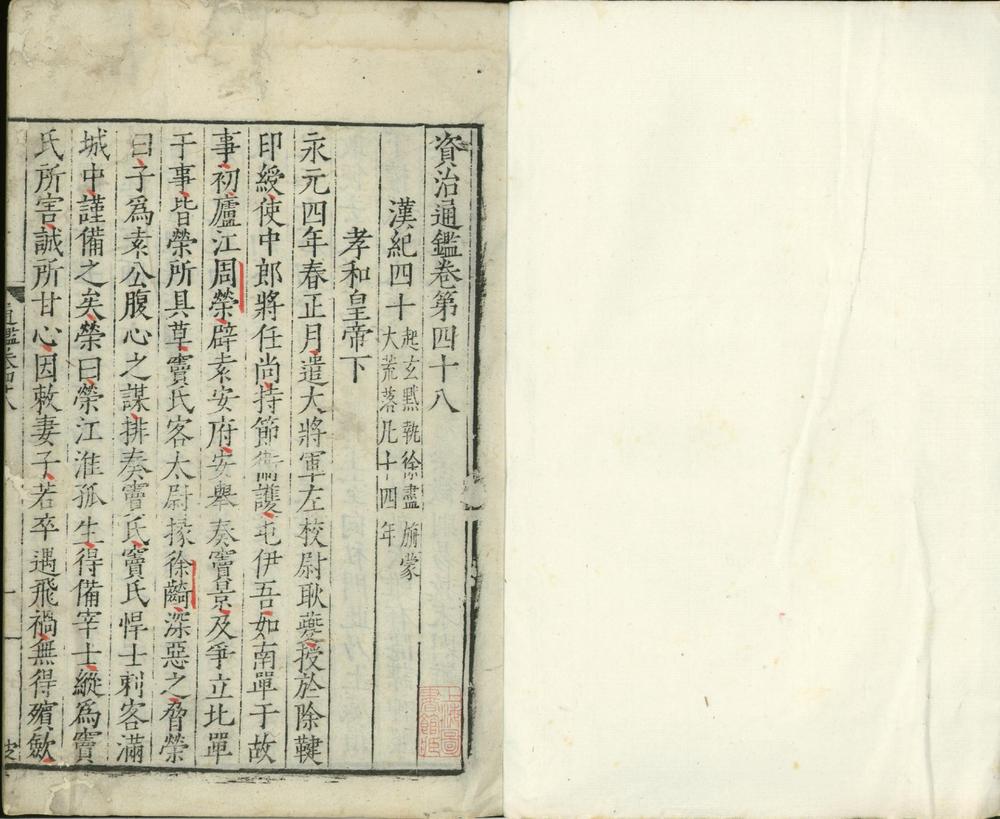 資治通鑑卷第四十八
漢紀四十 起玄黓執徐盡旃蒙
大荒落凡十四年
孝和皇帝下
永元四年春正月遣大將軍左校尉耿夔授於除鞬
印綬使中郎將任尚持節衛護屯伊吾如南單于故
事初廬江周榮辟袁安府安舉奏竇景及爭立北單
于事皆榮所具草竇氏客太尉掾徐齮深惡之脅榮
曰子爲袁公腹心之謀排奏竇氏竇氏悍士刺客滿
城中謹備之矣榮曰榮江淮孤生得備宰士縱爲竇
氏所害誠所甘心因敕妻子若卒遇飛禍無得殯斂
通鑑卷四十八
一
上海圖
書館藏